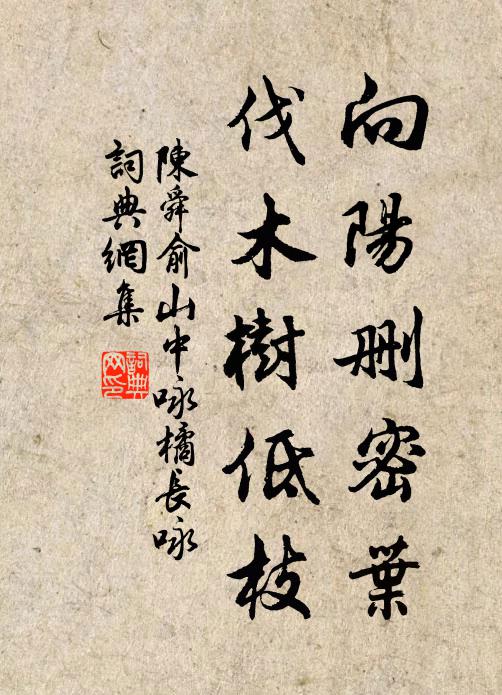 向陽刪密葉
伐木樹低枝
陳舜俞山中咏橘長咏
詞典網集
詞典网印